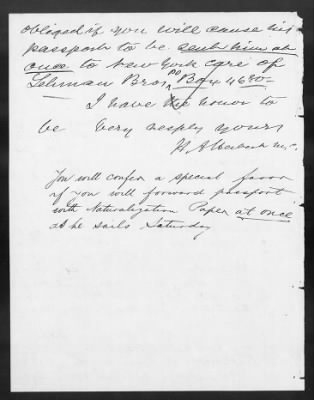 obliged if you will cause his
passport to be sent him at
once to New York care of
Lehman Bros PO Box 4680-
I have the honor to
be very resply yours
H A Herbert M.C.
You will confer a special favor
if you will forward passport
with Naturalization Paper at once
as he sails Saturday